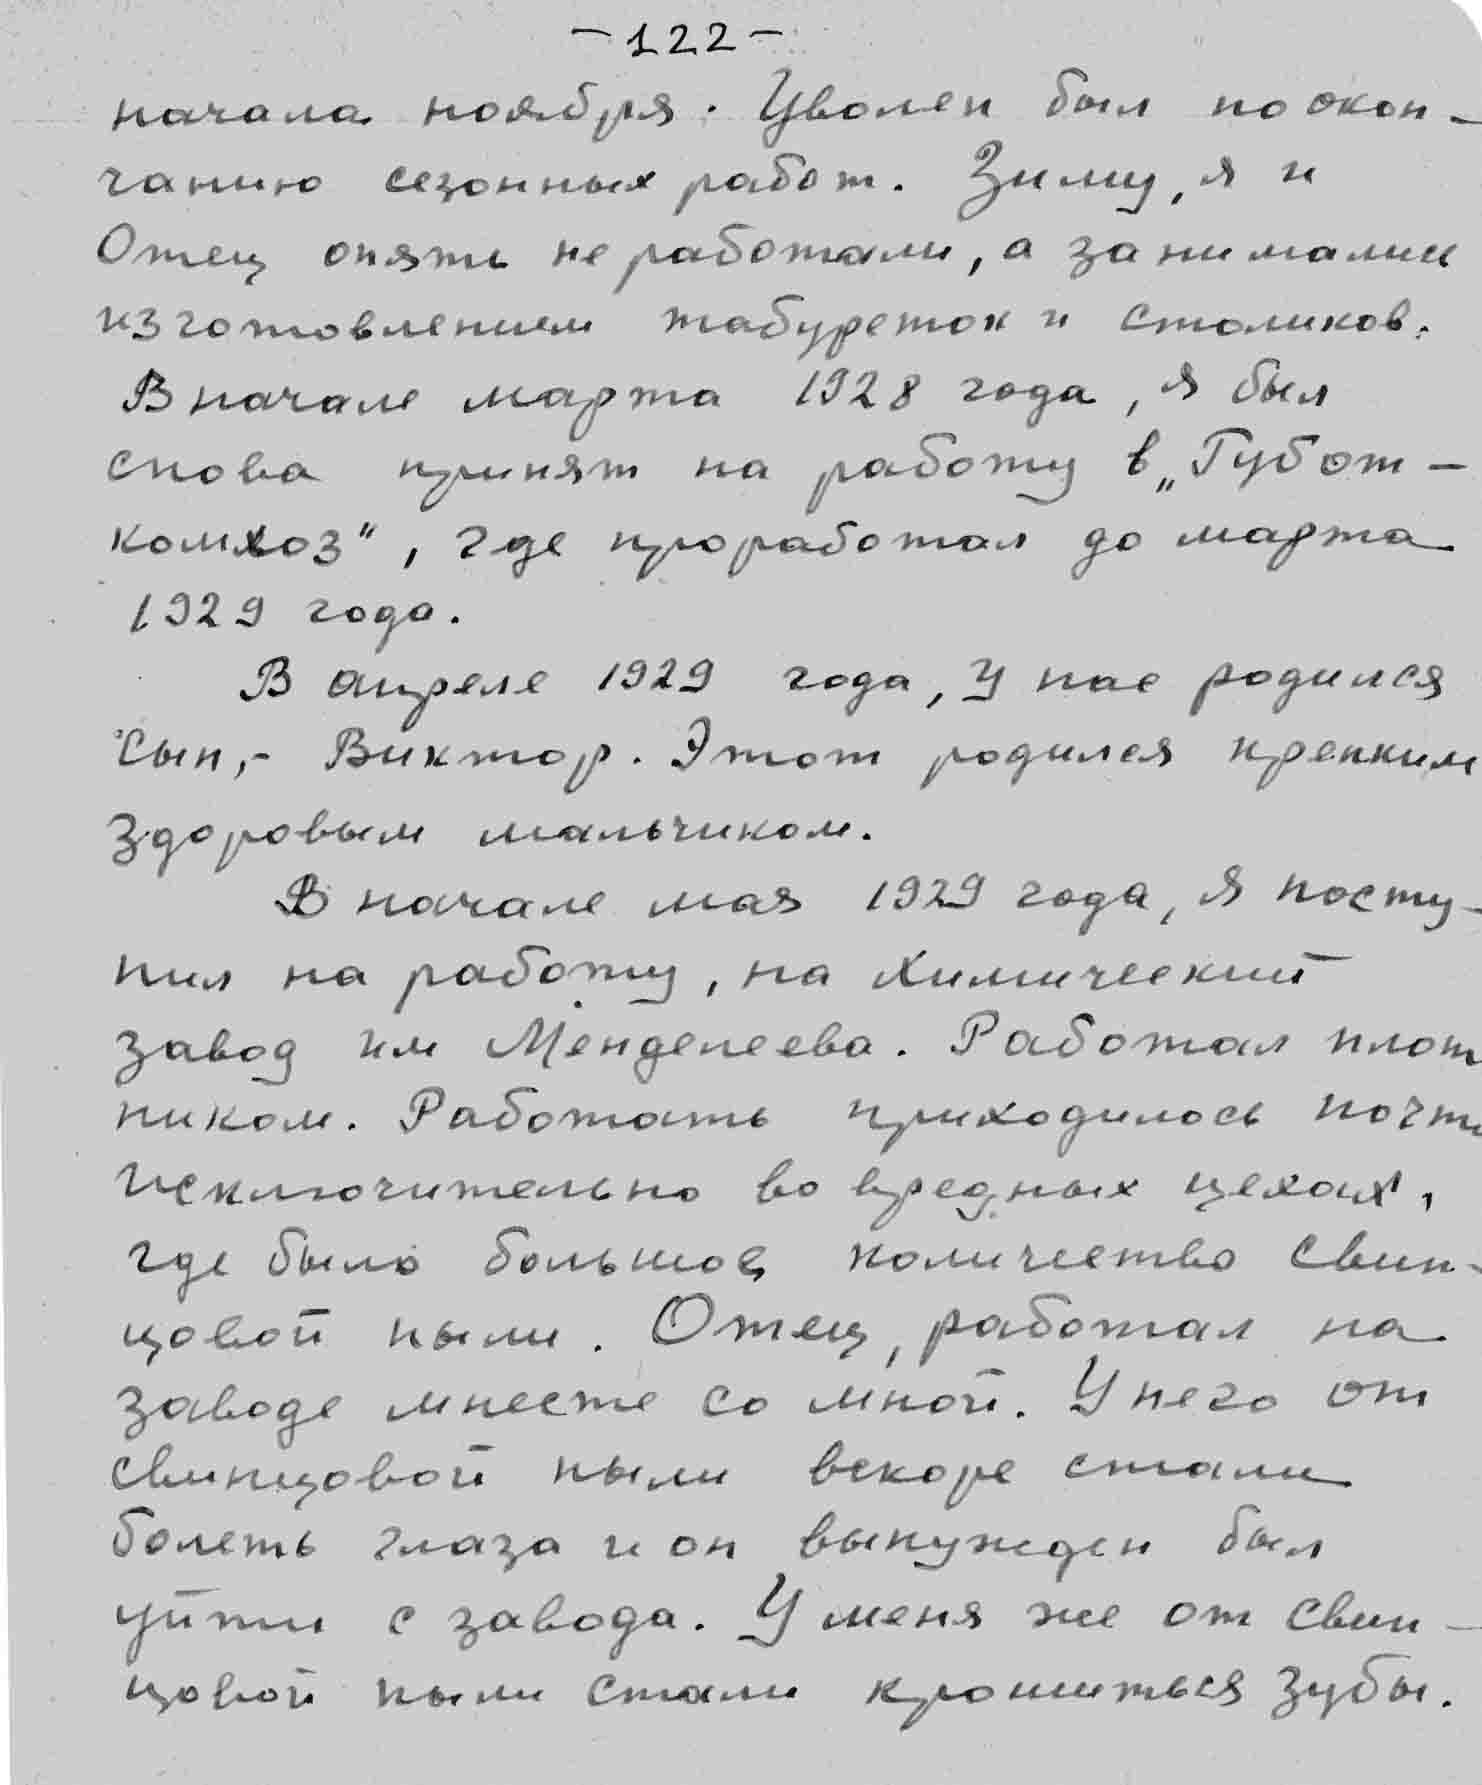 -122-
начала ноября. Уволен был по окон-
чанию сезонных работ. Зиму, я и
Отец опять не работали, а занимались
изготовлением табуреток и столиков.
В начале марта 1928 года, я был
снова принят на работу в „Губот-
комхоз", где проработал до марта
1929 года.
В апреле 1929 года, у нас родился
сын,- Виктор. Этот родился крепким
здоровым мальчиком.
В начале мая 1929 года, я посту-
пил на работу, на химический
завод им Менделеева. Работал плот
ником. Работать приходилось почти
исключительно во вредных цехах,
где было большое количество свин-
цовой пыли. Отец, работал на
заводе вместе со мной. У него от
свинцовой пыли вскоре стали
болеть глаза и он вынужден был
уйти с завода. У меня же от свин-
цовой пыли стали крошиться зубы.